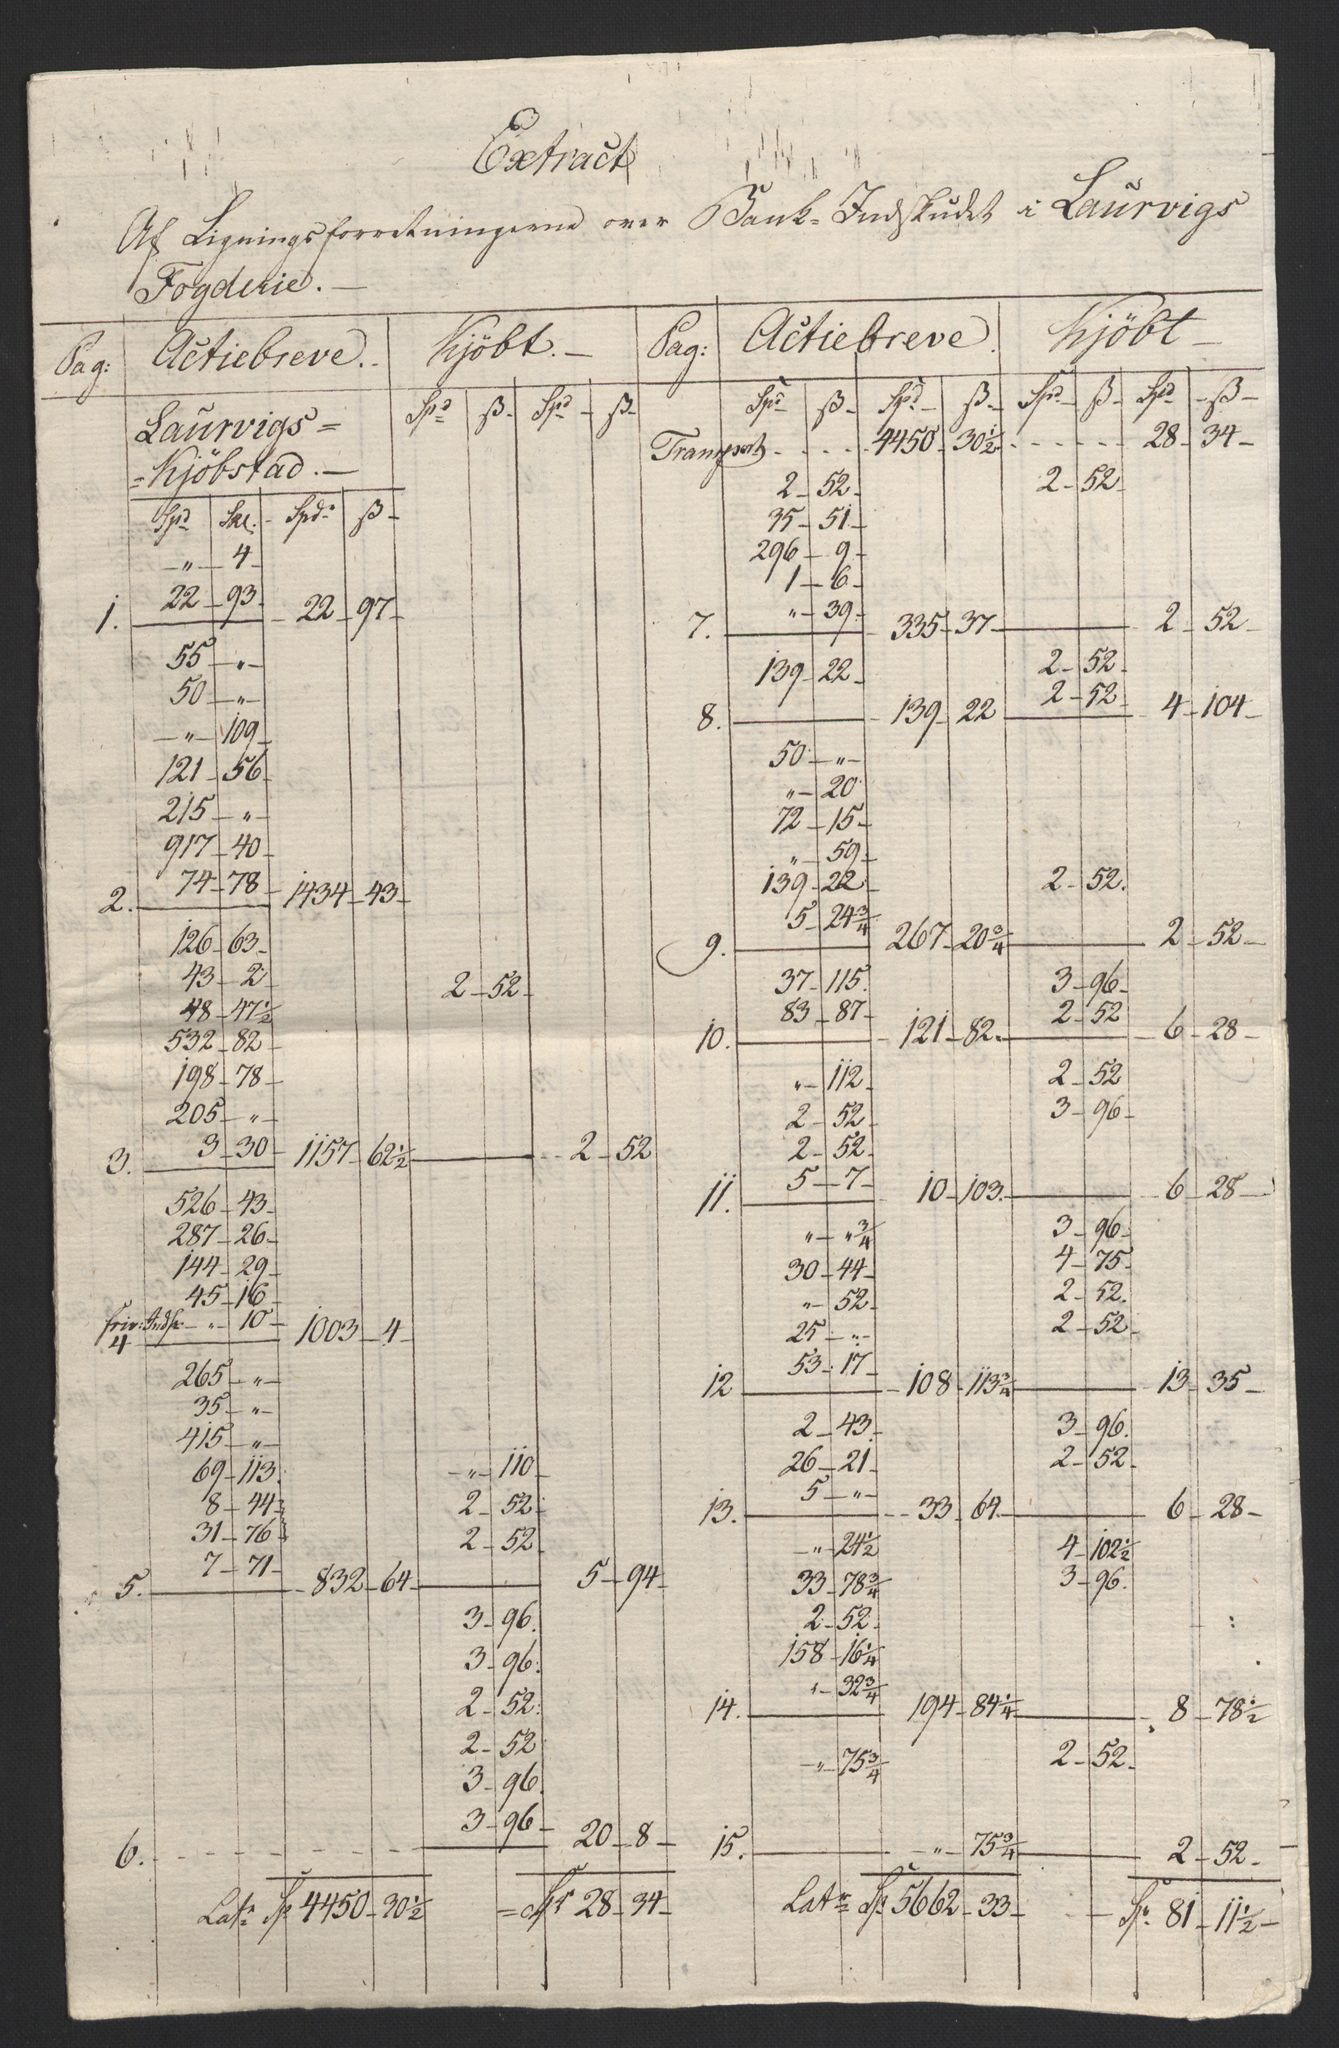 Extract
Af Ligningsforretningerne over Bank-Indskudet i Laurvigs
Fogderie.—
Pag: Actiebreve. Kjöbt.—
Spd ß Spd ß
Laurvigs=
=Kjöbstad.—
Spd Skl. Spd. ß
„ 4
1. 22 93 22 97
55 „
50 „
„ 109
121 56
215 „
917 40
2. 74 78 1434 43
126 63
43 2 2 52
48 47½
532 82
198 78
205 „
3. 3 30 1157 62½ 2 52
526 43
287 26
144 29
45 16
friv: Indsk „ 10
4 1003 4
265 „
35 „
415 „
69 113 „ 110
8 44 2 52
31 76 2 52
5. 7 71 832 64 5 94
3 96
3 96
2 52
2 52
3 96
3 96
6. 20 8
Lats Sp 4450 30½ = Spr 28 34
Pag: Actiebreve. Kjöbt—
Spd ß Spd ß Spd ß Spd ß
Transport 4450 30½ 28 34
2 52 2 52
35 51
296 9
1 6
„ 39
7. 335 37 2 52
139 22 2 52
2 52
8. 139 22 4 104
50 „
„ 20
72 15
„ 59
139 22 2 52
5 24¾
9. 267 20¾ 2 52
37 115 3 96
83 87 2 52
10. 121 82 6 28
„ 112 2 52
2 52 3 96
2 52
5 7
11. 10 103 6 28
„ „¾ 3 96
30 44 4 75
„ 52 2 52
25 „ 2 52
53 17
12 108 113¾ 13 35
2 43 3 96
26 21 2 52
5 „
13. 33 64 6 28
„ 24½ 4 102½
33 78¾ 3 96
2 52
158 16¼
„ 32¾
14. 194 84¼ 8 78½
„ 75¾ 2 52
15. „ 75¾ 2 52
Lats Sp. 5662 33 Sp. 81 11½